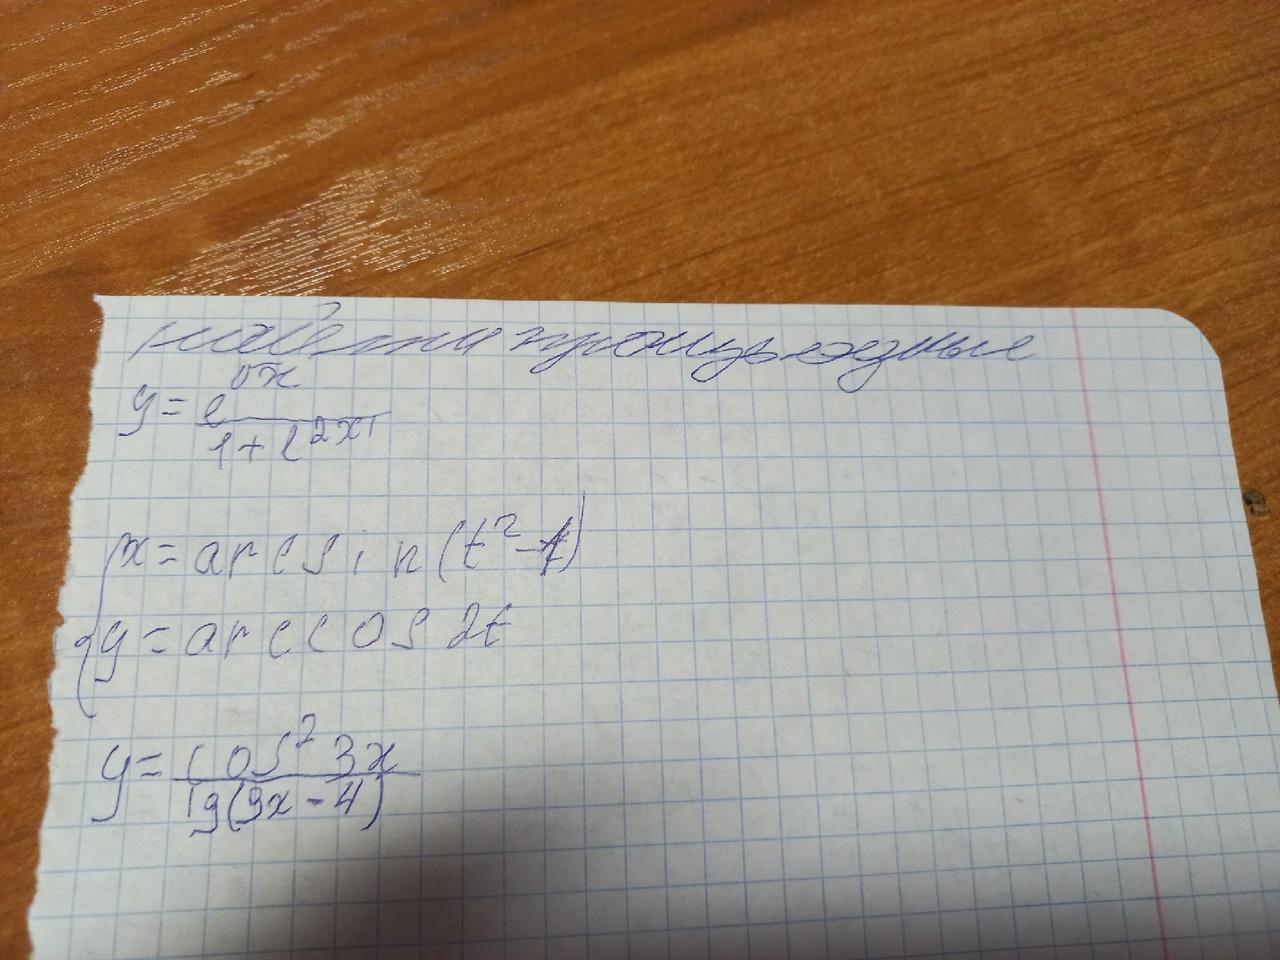 найти производные
y = e^{5x} / 1 + e^{2x+1}
{ x = arcsin(t² - 1)
y = arccos 2t
y = cos² 3x / tg(9x - 4)